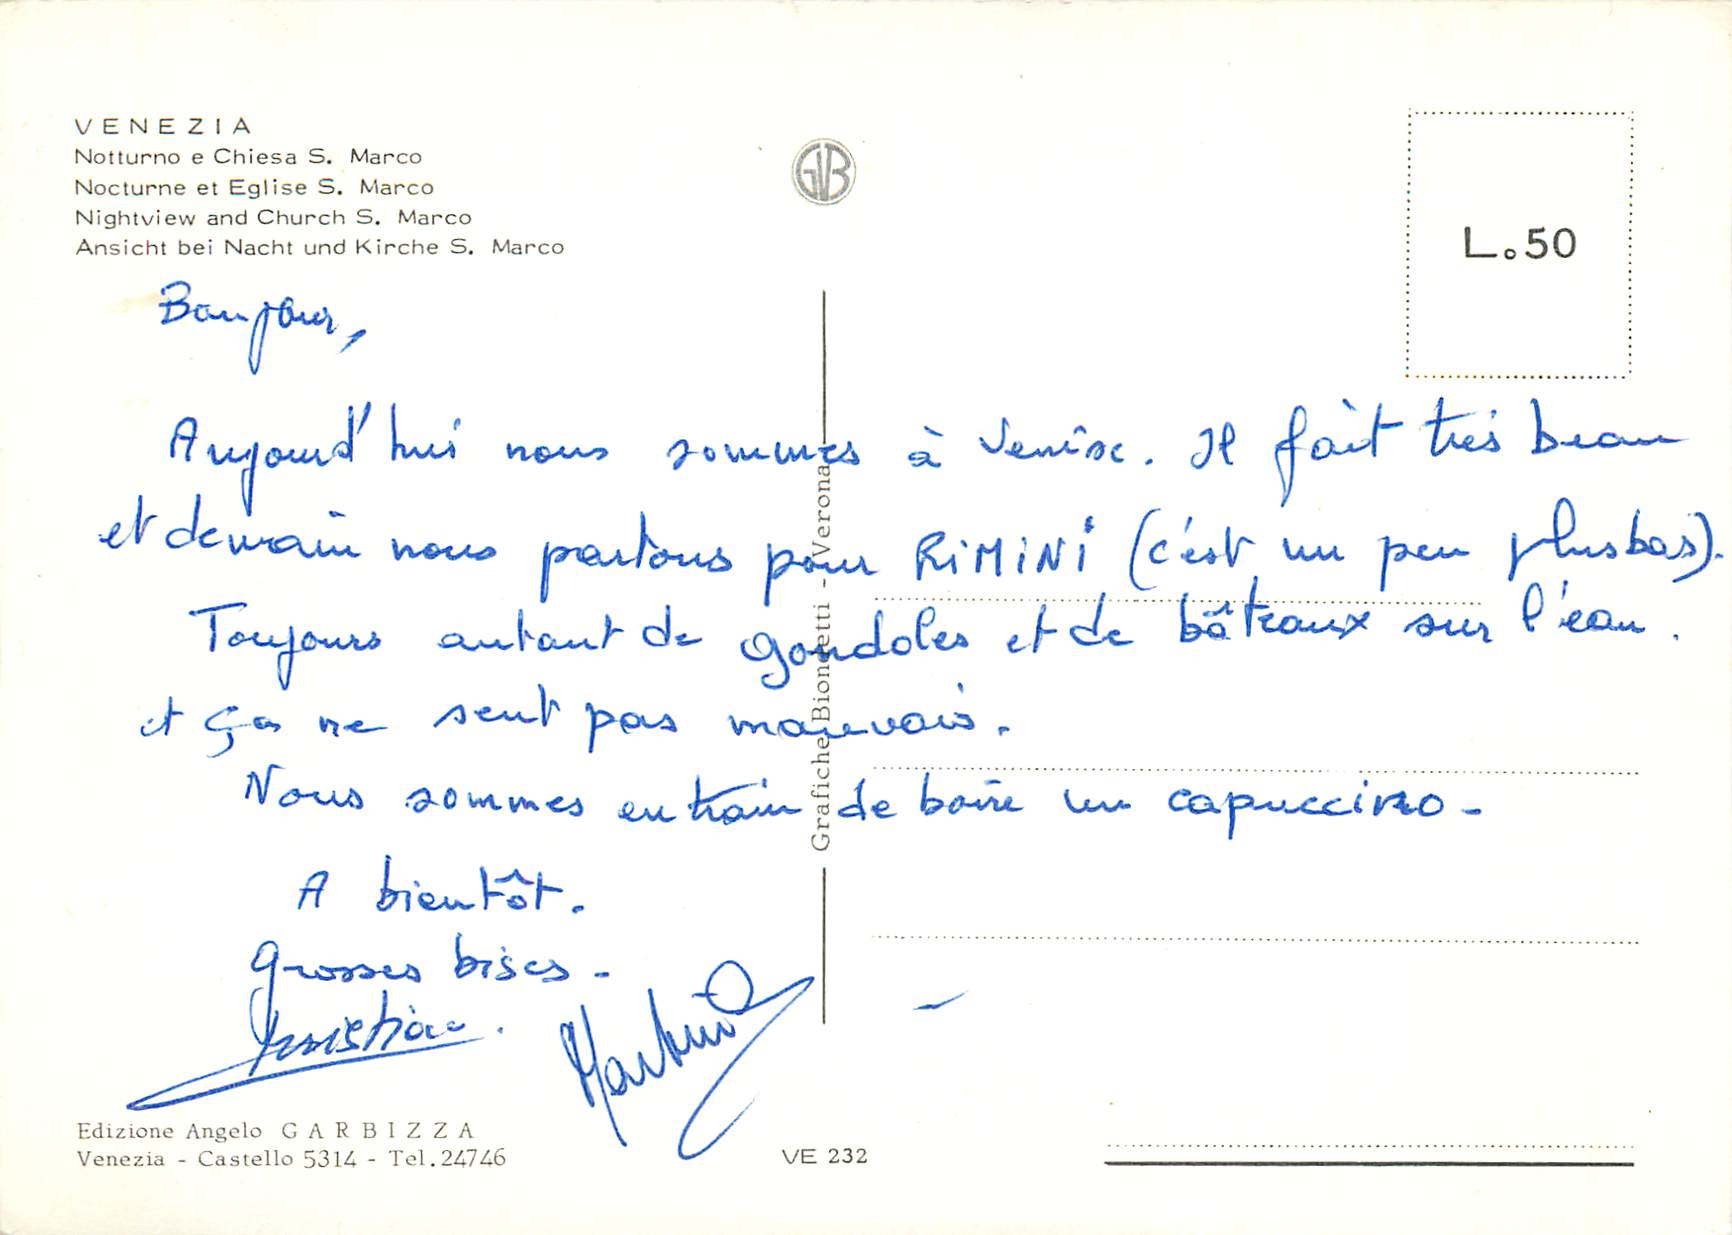 VENEZIA
Notturno e Chiesa S. Marco
Nocturne et Eglise S. Marco
Nightview and Church S. Marco
Ansicht bei Nacht und Kirche S. Marco
GB
L. 50
Bonjour,
Aujourd'hui nous sommes à Venise. Il fait très beau
et demain nous partons pour RIMINI (c'est un peu plus bas).
Toujours autant de gondoles et de bâteaux sur l'eau.
et ça ne sent pas mauvais.
Nous sommes en train de boire un capuccino.
A bientôt.
Grosses bises -
Christian.
Martine
Grafiche Bionetti - Verona
Edizione Angelo GARBIZZA
Venezia - Castello 5314 - Tel. 24746
VE 232